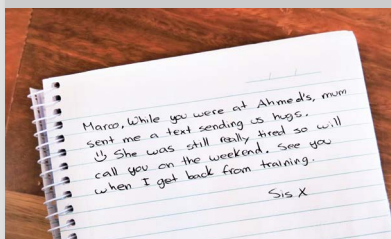 Marco, While you were at Ahmed's, mum
sent me a text sending us hugs.
☺ She was still really tired so will
call you on the weekend. See you
when I get back from training.
Sis X